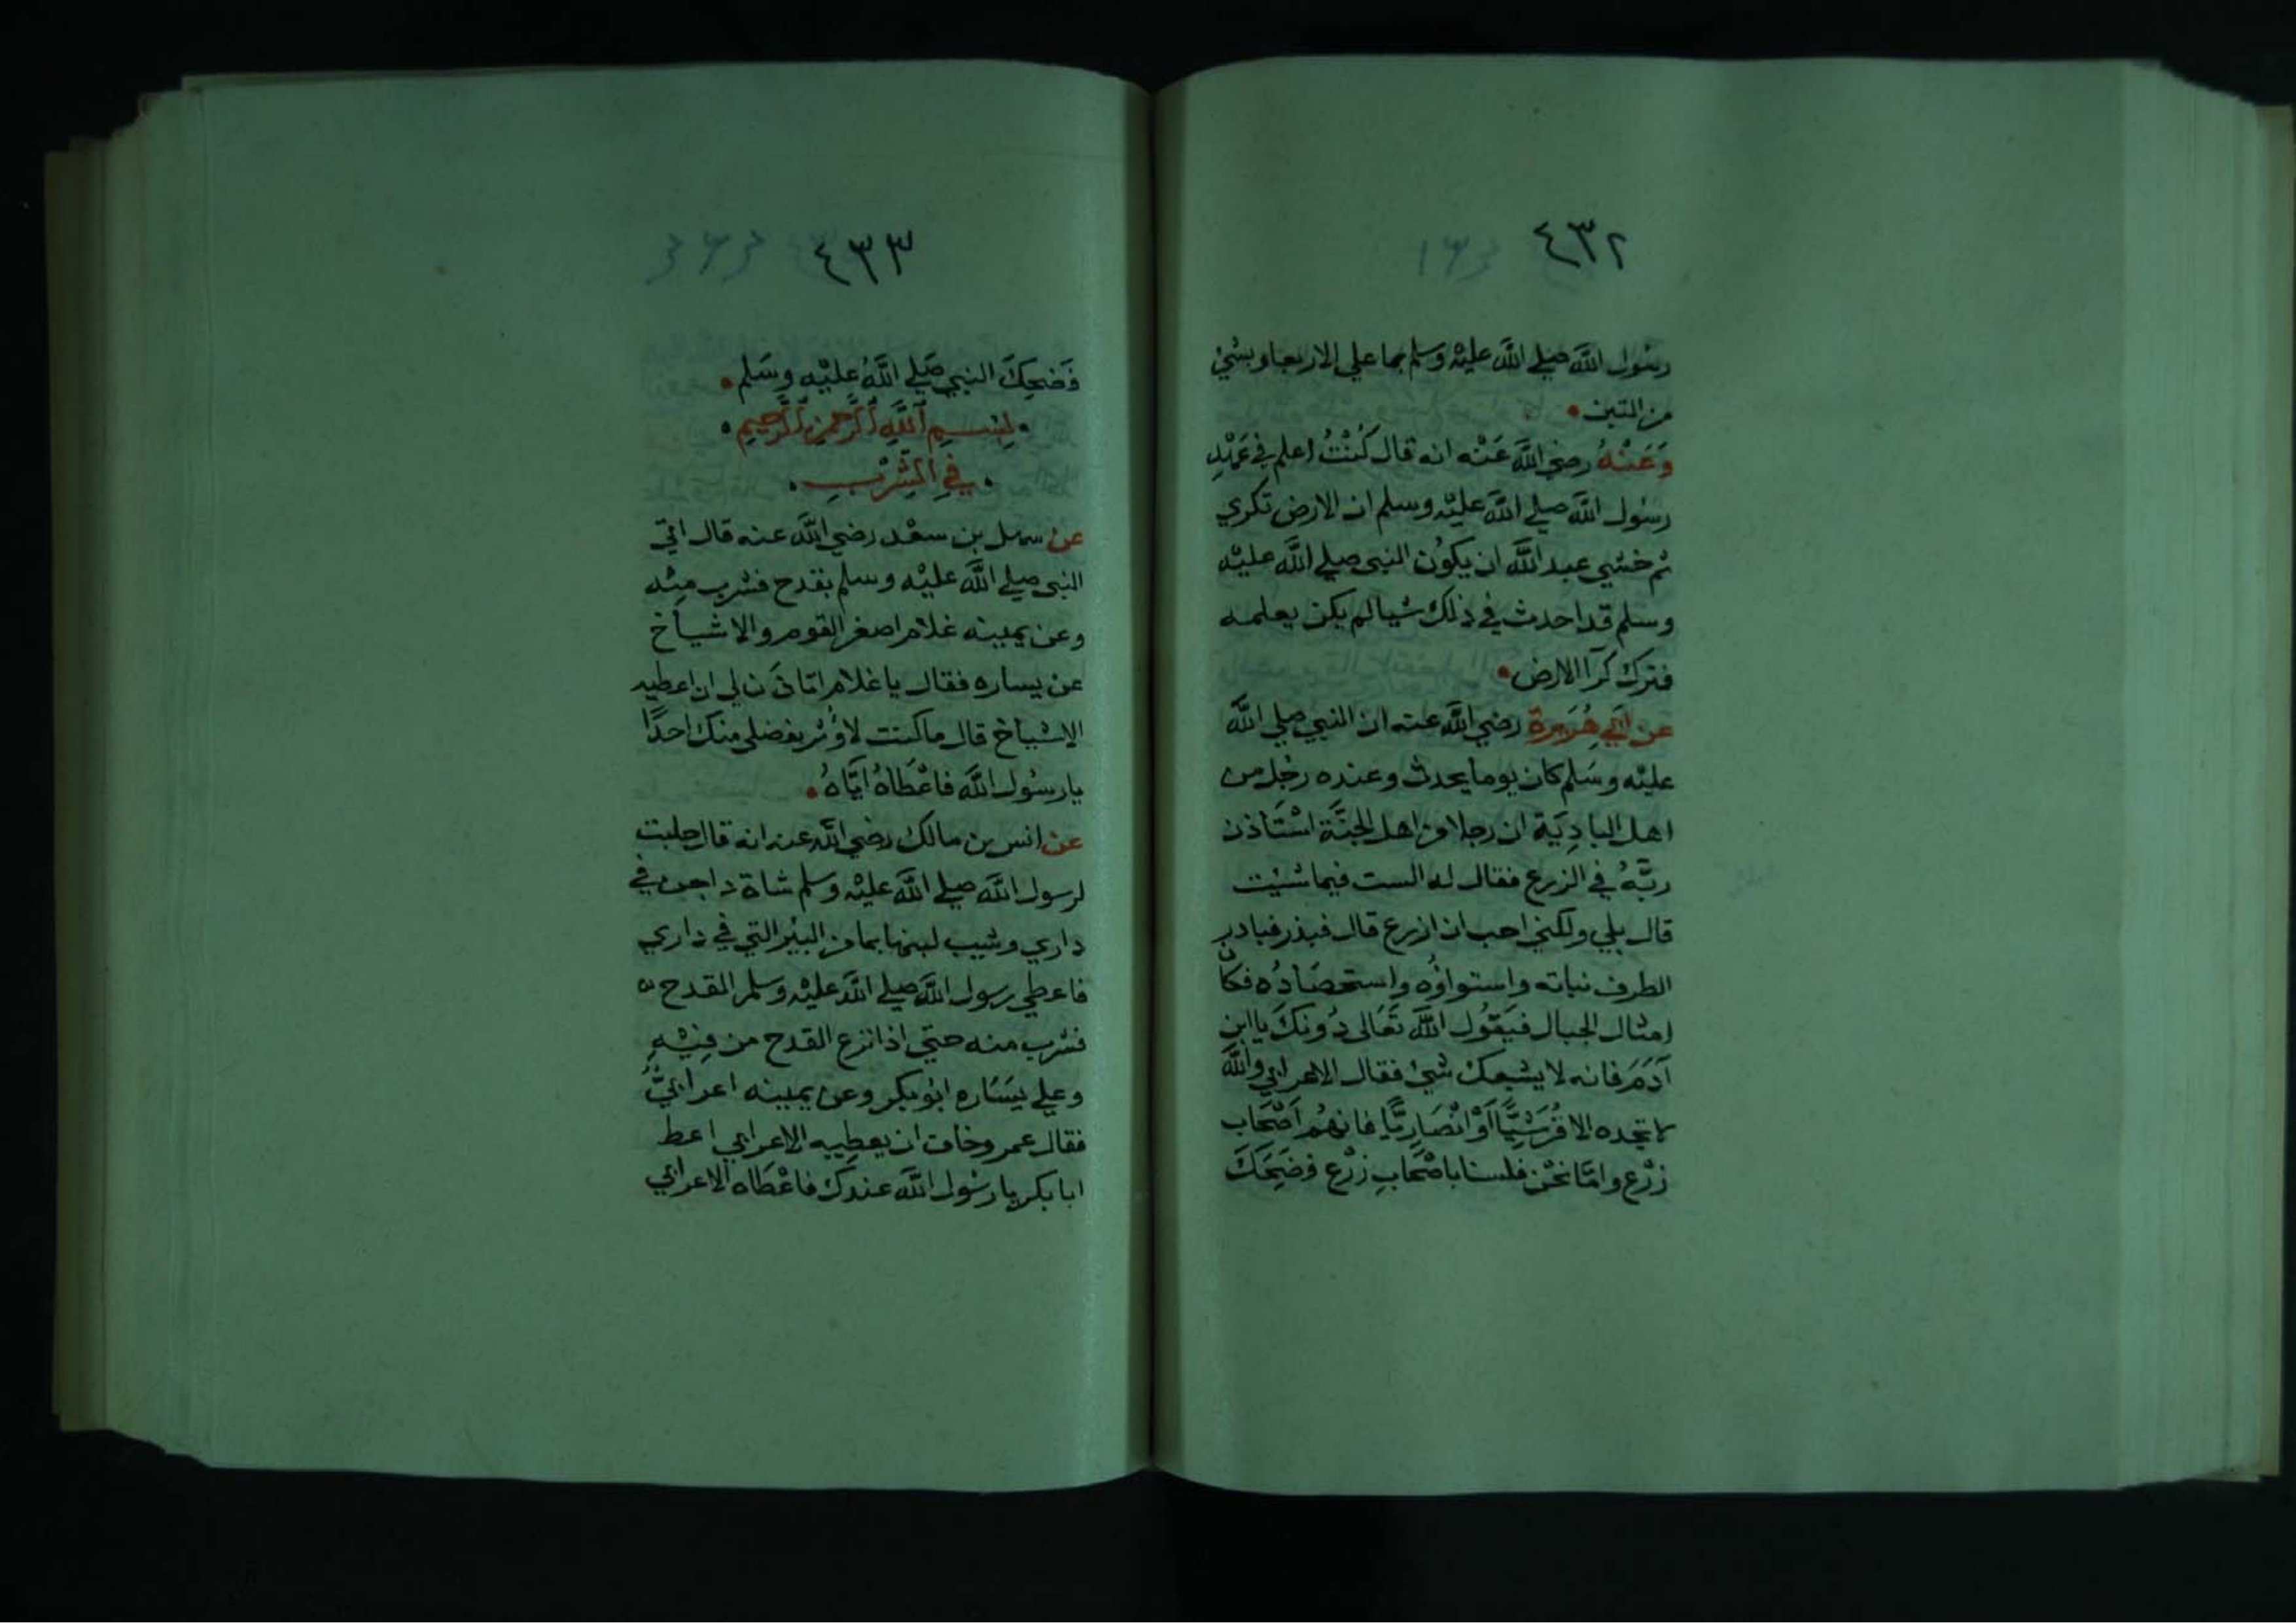 ٤٣٢
رسول الله صلي الله عليه وسلم بما علي الاربعا وبشئ
من التبن
وَعَنْهُ رضي الله عَنْه انه قال كُنْتُ اعلم في عَهْدِ
رسُول الله صلي الله عليْه وسلم ان الارض تكري
ثم خشي عبد الله ان يكُون النبي صلي الله عليْه
وسلم قد احدث في ذلك شيا لم يكن يعلمه
فترك كرآ الارض
عن ابي هُرَيرة رضي الله عنه ان النبي صلي الله
عليْه وسَلم كان يوما يحدث وعنده رجُل من
اهل البادِيَة ان رجلا من اهل الجنَّة اسْتَاذن
ربَّهُ في الزرع فقال له الست فيما شئت
قال بلي ولكني احب ان ازرع قال فبذر فبادر
الطرف نباته واستواؤه واستحصَادُه فكان
امثال الجبال فيَقُول الله تَعَالى دُونكَ يا ابن
آدَمَ فانه لا يشبعك شئ فقال الاعرابي والله
لا تجده الا قُرَشِيًّا اَوْ انْصَارِيًّا فانهُم اَصْحَاب
زرْع وامَّا نحْن فلسنا باصْحَابِ زرْع فضَحِكَ
٤٣٣
فَضحِكَ النبي صَلي اللهُ عَليْه وسَلم
بِسْمِ اللَّهِ الرَّحمنِ الرَّحِيمِ
في الشِّرْبِ
عن سهل بن سعْد رضي الله عنه قال اتي
النبي صلي الله عليْه وسلم بقدح فشرب مِنْه
وعن يمينه غلام اصغر القوم والاشياخ
عن يساره فقال يا غلام اتاذَن لي ان اعطيه
الاشياخ قال ما كنت لاؤثر بفضلي منك احدًا
يا رسُول الله فاعْطَاهُ ايَّاهُ
عن انس بن مالك رضي الله عنه انه قال حلبت
لرسول الله صلي الله عليْه وسلم شاة داجن في
داري وشيب لبنها بما من البئر التي في داري
فاعطي رسول الله صلي الله عليْه وسلم القدح
فشرب منه حتي اذا نزع القدح من فِيْهِ
وعلي يَسَاره ابُو بكر وعن يمينه اعرابيٌّ
فقال عمر وخاف ان يعطِيه الاعرابي اعط
ابا بكر يا رسُول الله عندك فاعْطَاه الاعرابي